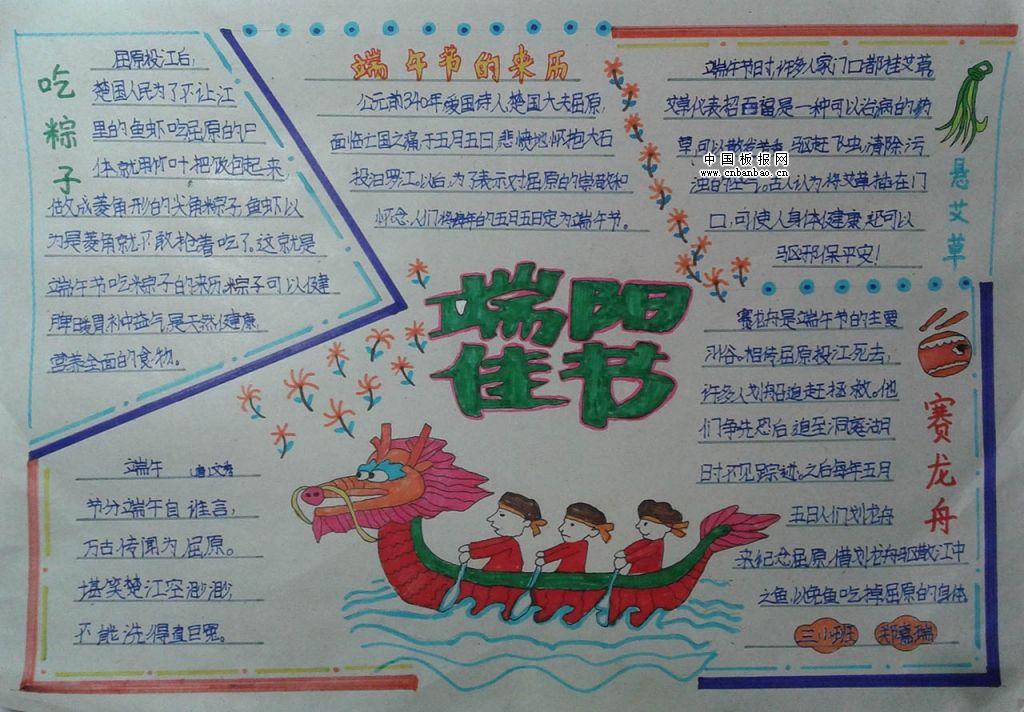 吃粽子
屈原投江后,
楚国人民为了不让江
里的鱼虾吃屈原的尸
体,就用竹叶把饭包起来,
做成菱角形的尖角粽子,鱼虾以
为是菱角就不敢抢着吃了。这就是
端午节吃粽子的来历,粽子可以健
脾暖胃补中益气,是天然健康,
营养全面的食物。
端午节的来历
公元前340年爱国诗人楚国大夫屈原,
面临亡国之痛于五月五日,悲愤地怀抱大石
投汨罗江。以后,为了表示对屈原的崇敬和
怀念,人们将每年的五月五日定为端午节。
端午节时,许多人家门口都挂艾草。
艾草代表招百福是一种可以治病的药
草,可以散发芳香,驱赶飞虫,清除污
浊的空气。古人认为将艾草插在门
口,可使人身体健康,还可以
驱邪保平安!
悬艾草
中国板报网
www.cnbanbao.cn
端阳
佳节
赛龙舟是端午节的主要
习俗。相传屈原投江死去,
许多人划船追赶拯救。他
们争先恐后追至洞庭湖
时不见踪迹。之后每年五月
五日人们划龙舟
来纪念屈原,借划龙舟驱散江中
之鱼,以免鱼吃掉屈原的身体。
赛龙舟
三小班 郑嘉瑞
端午 唐文秀
节分端午自谁言,
万古传闻为屈原。
堪笑楚江空渺渺,
不能洗得直臣冤。